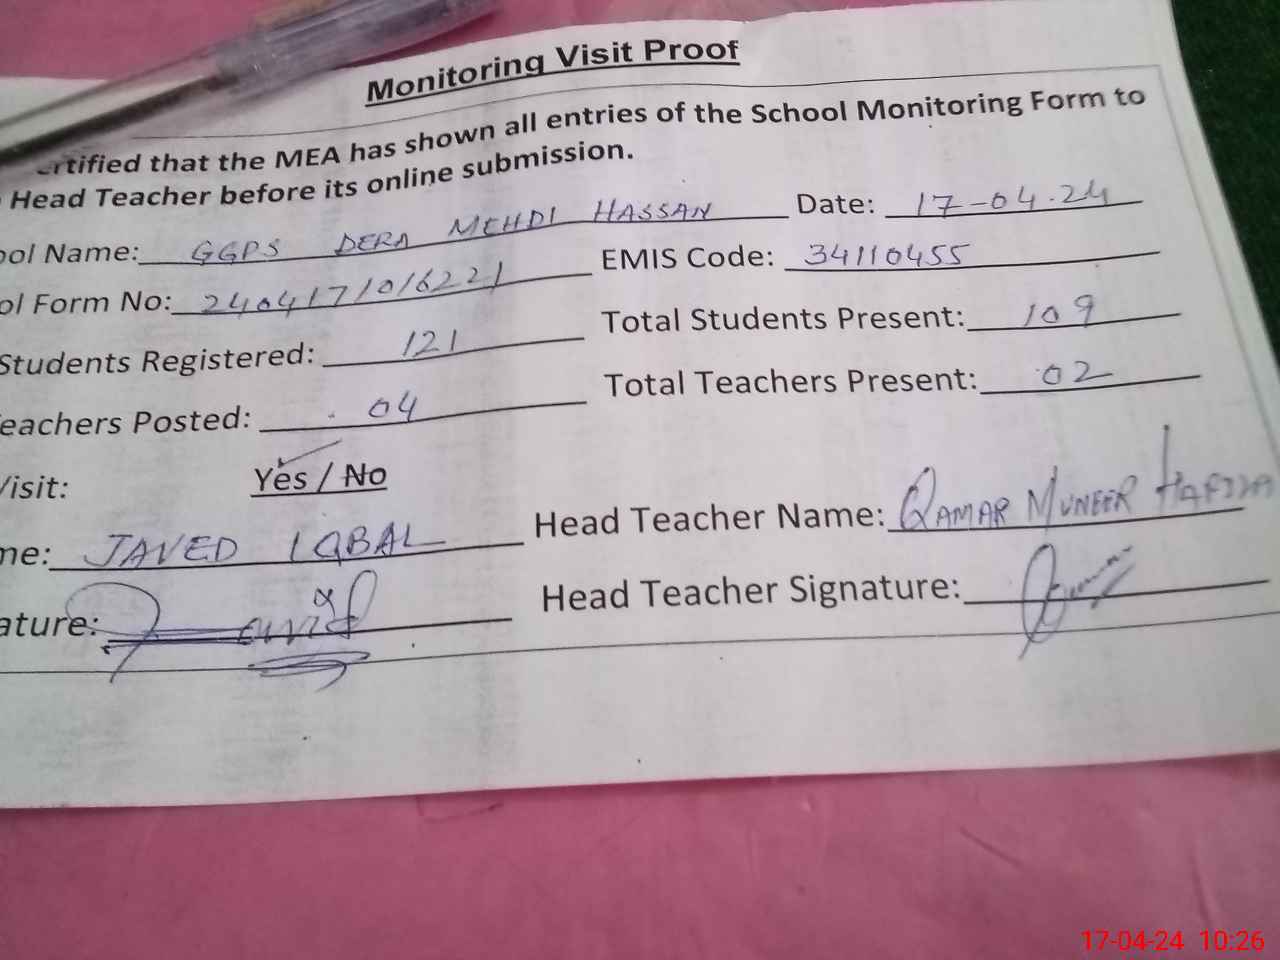 Monitoring Visit Proof
ertified that the MEA has shown all entries of the School Monitoring Form to
Head Teacher before its online submission.
ool Name: GGPS DERA MEHDI HASSAN Date: 17-04-24
ol Form No: 2404171016221 EMIS Code: 34110455
Students Registered: 121 Total Students Present: 109
Teachers Posted: 04 Total Teachers Present: 02
Visit: Yes / No
me: JAVED IQBAL Head Teacher Name: QAMAR MUNEER
ature: Head Teacher Signature:
17-04-24 10:26